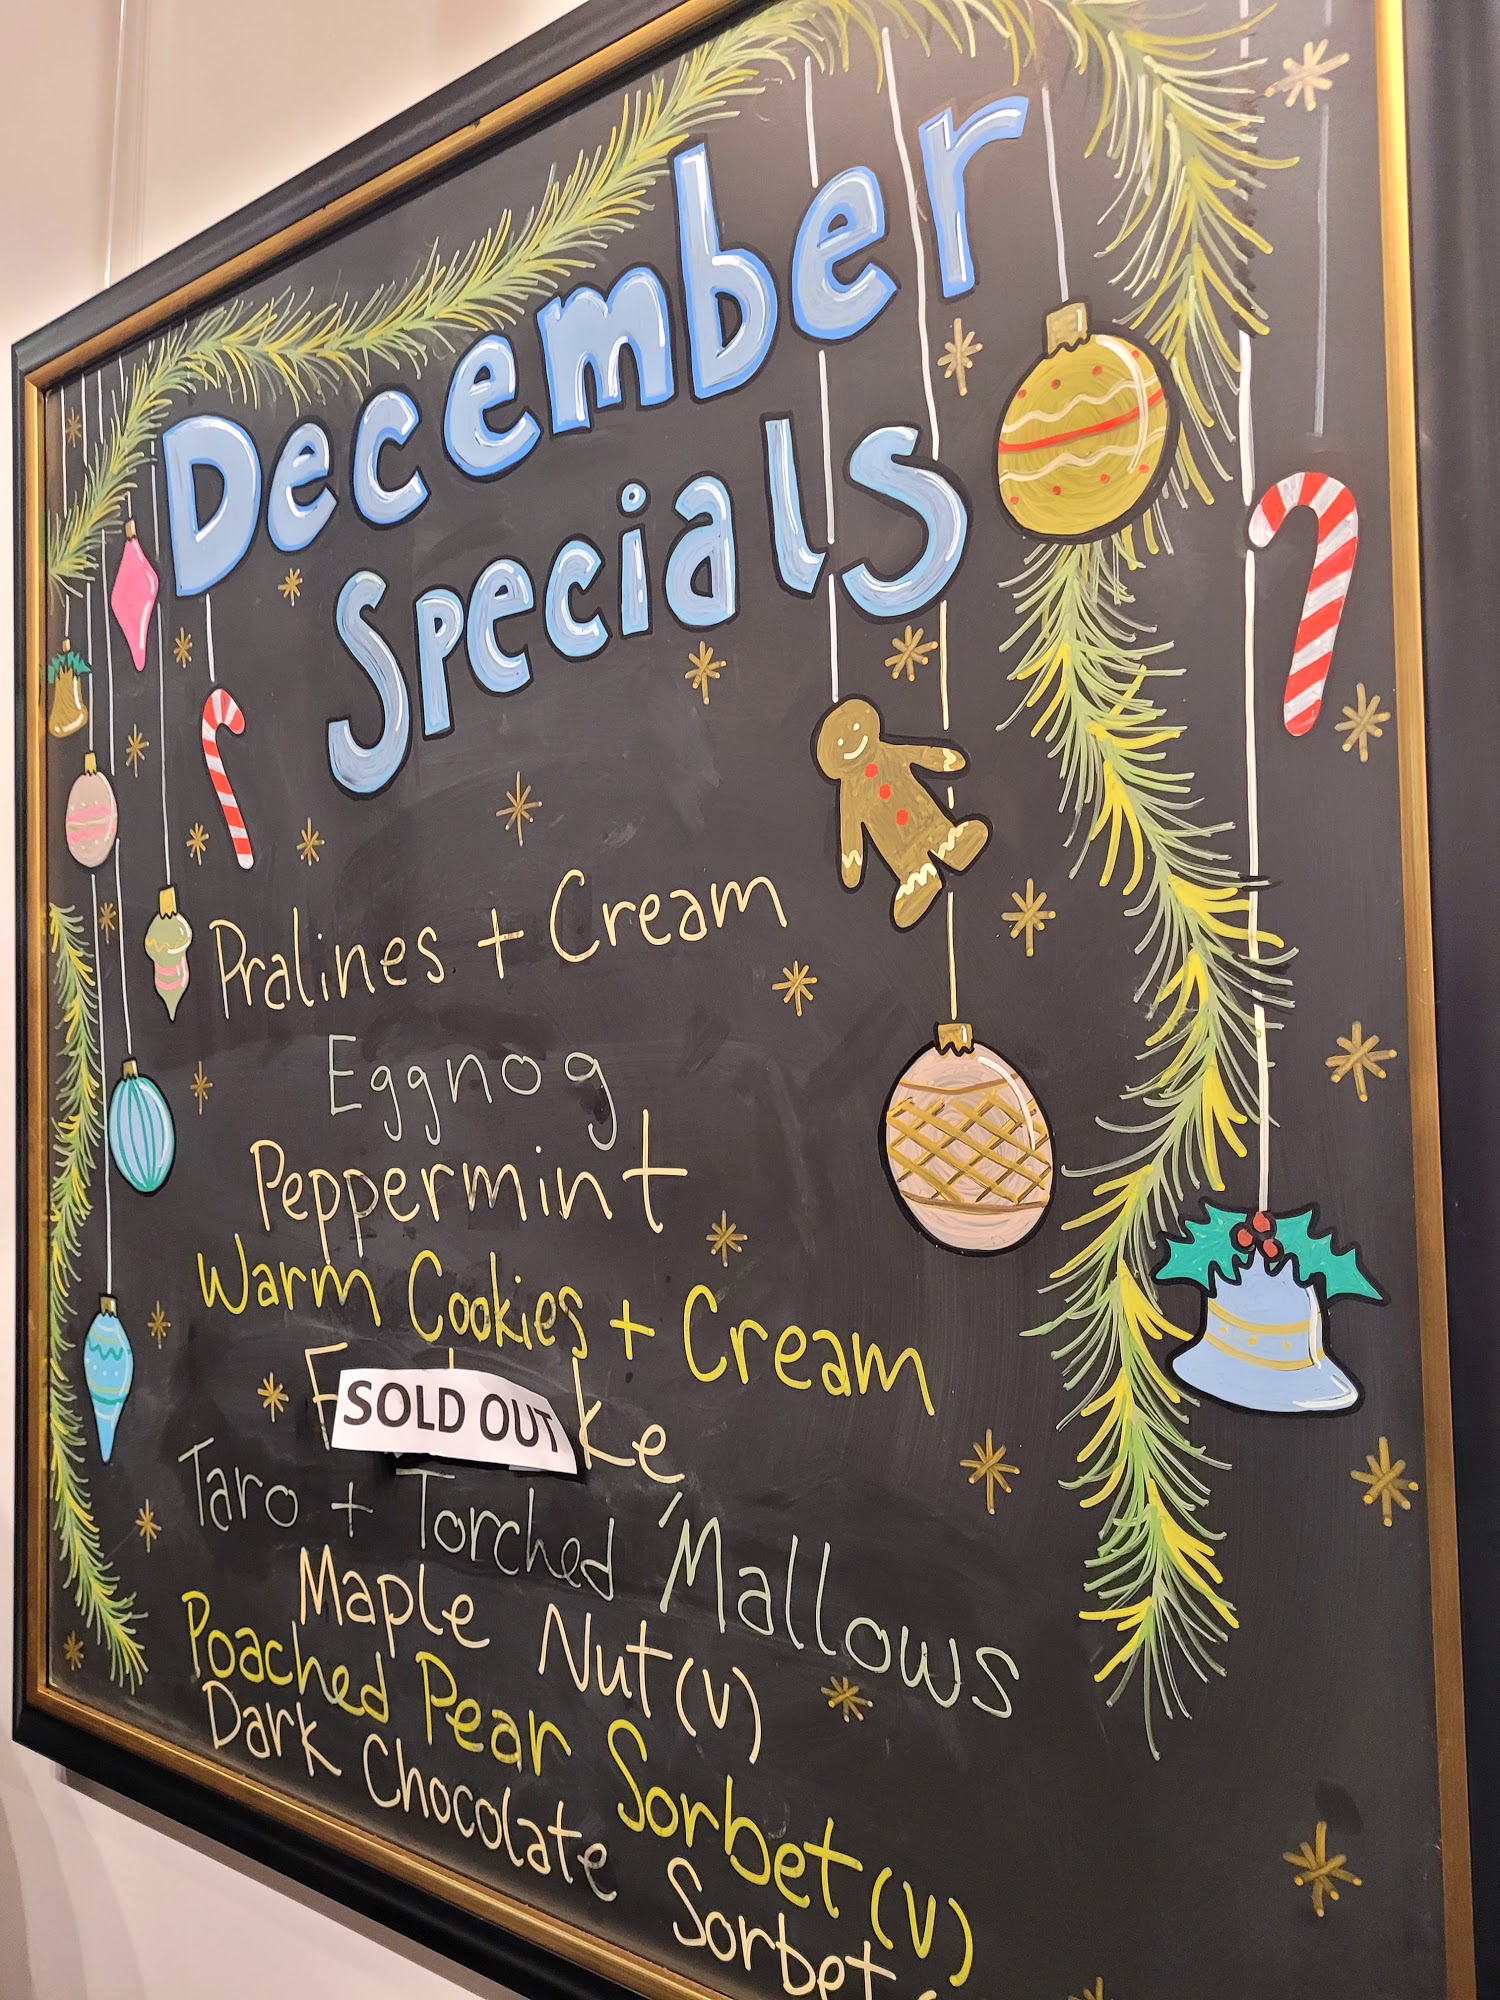 December
Specials
Pralines + Cream
Eggnog
Peppermint
Warm Cookies + Cream
SOLD OUT
Taro + Torched 'Mallows
Maple Nut (V)
Poached Pear Sorbet (V)
Dark Chocolate Sorbet